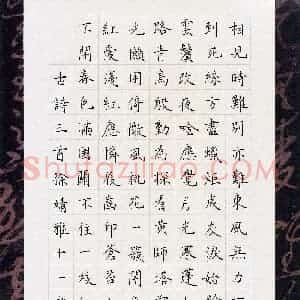 相見時難別亦難東風無力
到死絲方盡蠟炬成灰淚始
雲鬢改夜吟應覺月光寒蓬
路青鳥殷勤為探看黃師塔
光懶困倚微風桃花一簇開
紅愛淺紅應憐屐齒印蒼苔
不開春色滿園關不住一枝
古詩三首徐婧雅十一